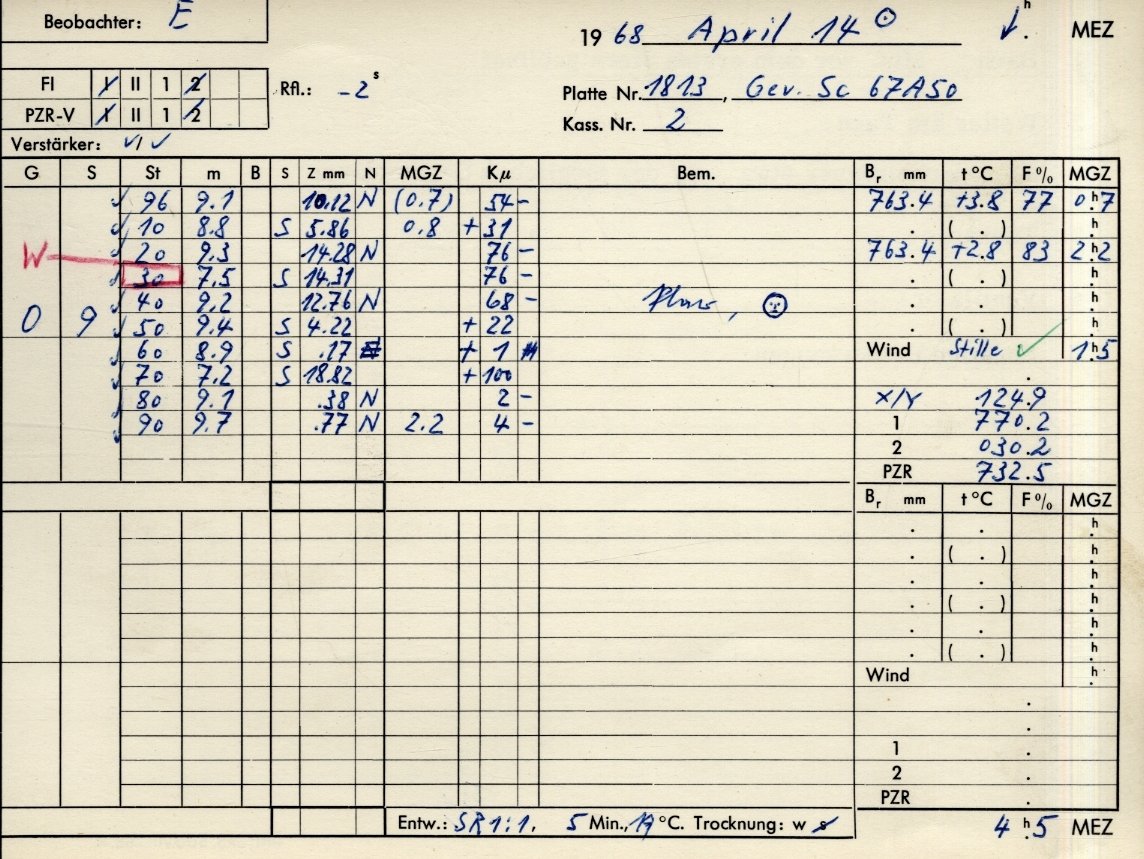 Beobachter: E
19 68 April 14 ⊙ h . MEZ
FI I II 1 2
Rfl.: -2 s
Platte Nr. 1813, Gev. Sc 67A50
PZR-V I II 1 2
Kass. Nr. 2
Verstärker: VI
G S St m B S Z mm N MGZ Kμ Bem. Br mm t °C F% MGZ
96 9.1 10.12 N (0.7) 54 - 763.4 +3.8 77 0h.7
10 8.8 S 5.86 0.8 + 31 . ( . ) h .
W 20 9.3 14.28 N 76 - 763.4 +2.8 83 2h.2
30 7.5 S 14.31 76 - . ( . ) h .
40 9.2 12.76 N 68 - . . h .
0 9 50 9.4 S 4.22 + 22 . ( . ) h .
60 8.9 S .17 + 1 Wind Stille ✓ 1h.5
70 7.2 S 18.82 + 100 .
80 9.1 .38 N 2 - X/Y 124.9
90 9.7 .77 N 2.2 4 - 1 770.2
2 030.2
PZR 732.5
Br mm t °C F% MGZ
. . h .
. ( . ) h .
. . h .
. ( . ) h .
. . h .
. ( . ) h .
Wind h .
.
.
1 .
2 .
PZR .
Entw.: SR 1:1, 5 Min., 19 °C. Trocknung: w s 4 h.5 MEZ